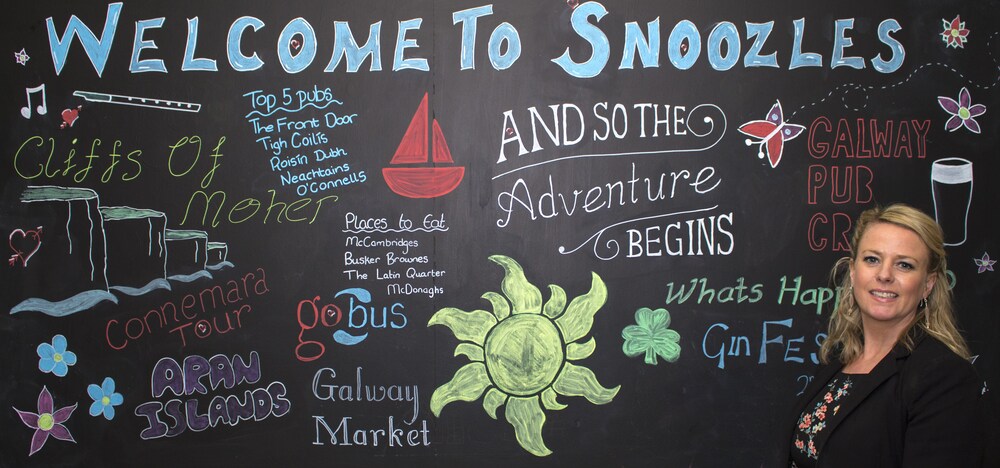 WELCOME TO SNOOZLES
Top 5 pubs
The Front Door
Tigh Coilis
Roisin Dubh
Neachtains
O'Connells
Cliffs Of
Moher
Places to Eat
McCambridges
Busker Brownes
The Latin Quarter
McDonaghs
AND SO THE
Adventure
BEGINS
GALWAY
PUB
CR
Connemara
Tour
gobus
Whats Happ
Gin Fes
ARAN
ISLANDS
Galway
Market